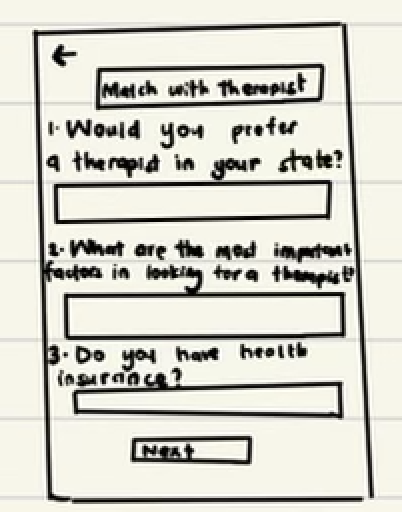 Match with therapist
1. Would you prefer
a therapist in your state?
2. What are the most important
factors in looking for a therapist?
3. Do you have health
insurance?
Next